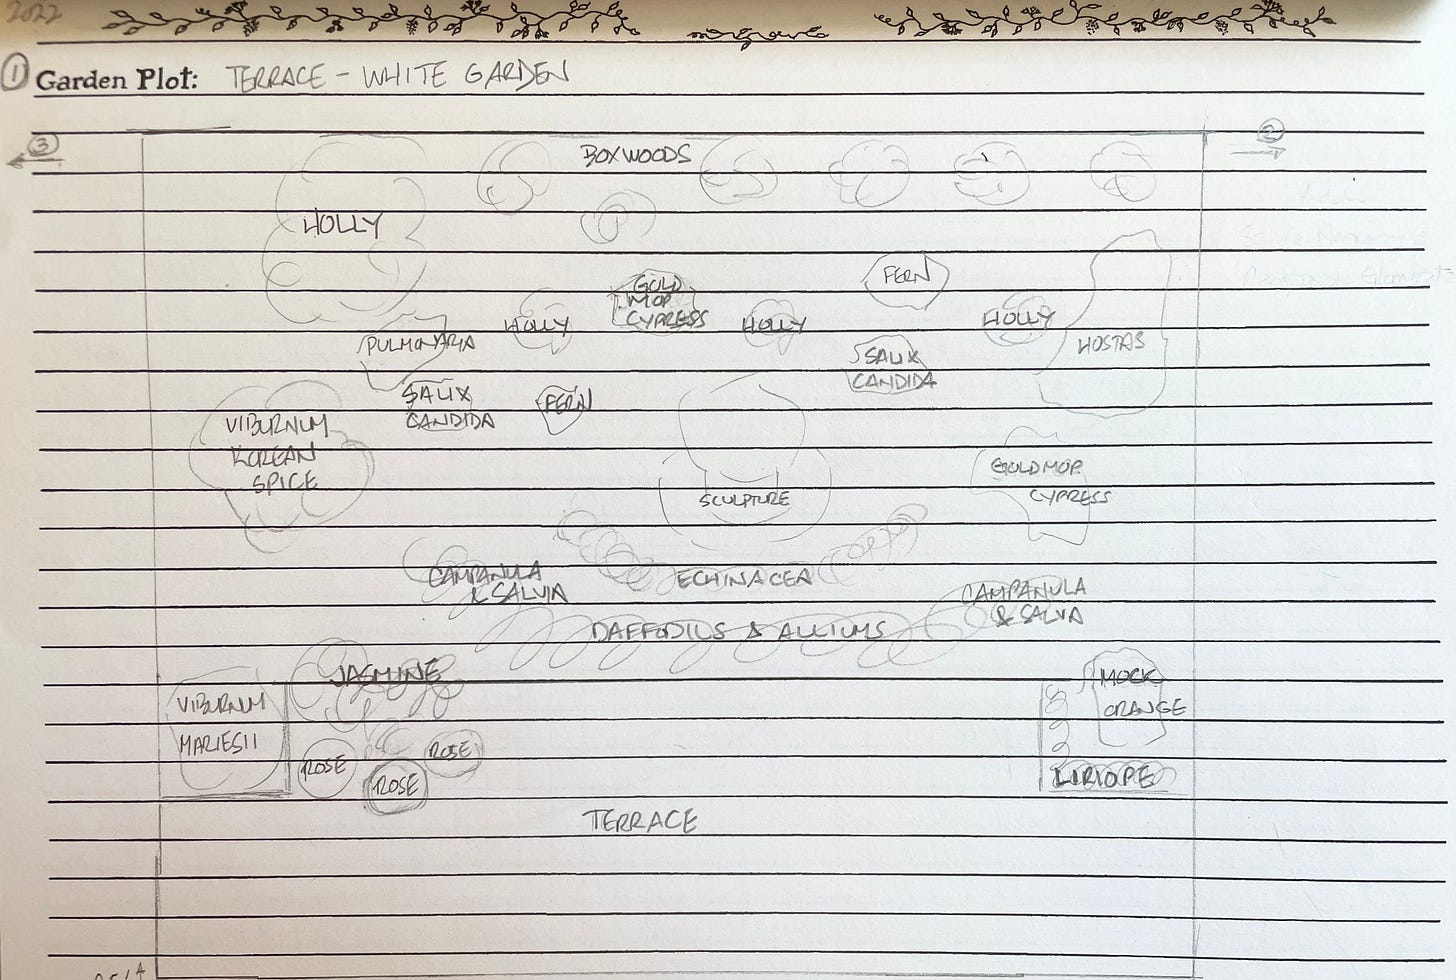 2022
① Garden Plot: TERRACE - WHITE GARDEN
③
②
BOXWOODS
HOLLY
FERN
GOLD
MOP
CYPRESS
HOLLY
HOLLY
HOLLY
PULMONARIA
HOSTAS
SALIX
CANDIDA
SALIX
CANDIDA
FERN
VIBURNUM
KOREAN
SPICE
GOLDMOP
CYPRESS
SCULPTURE
CAMPANULA
& SALVIA
ECHINACEA
CAMPANULA
& SALVA
DAFFODILS & ALLIUMS
JASMINE
MOCK
ORANGE
VIBURNUM
MARIESII
ROSE
ROSE
ROSE
LIRIOPE
TERRACE